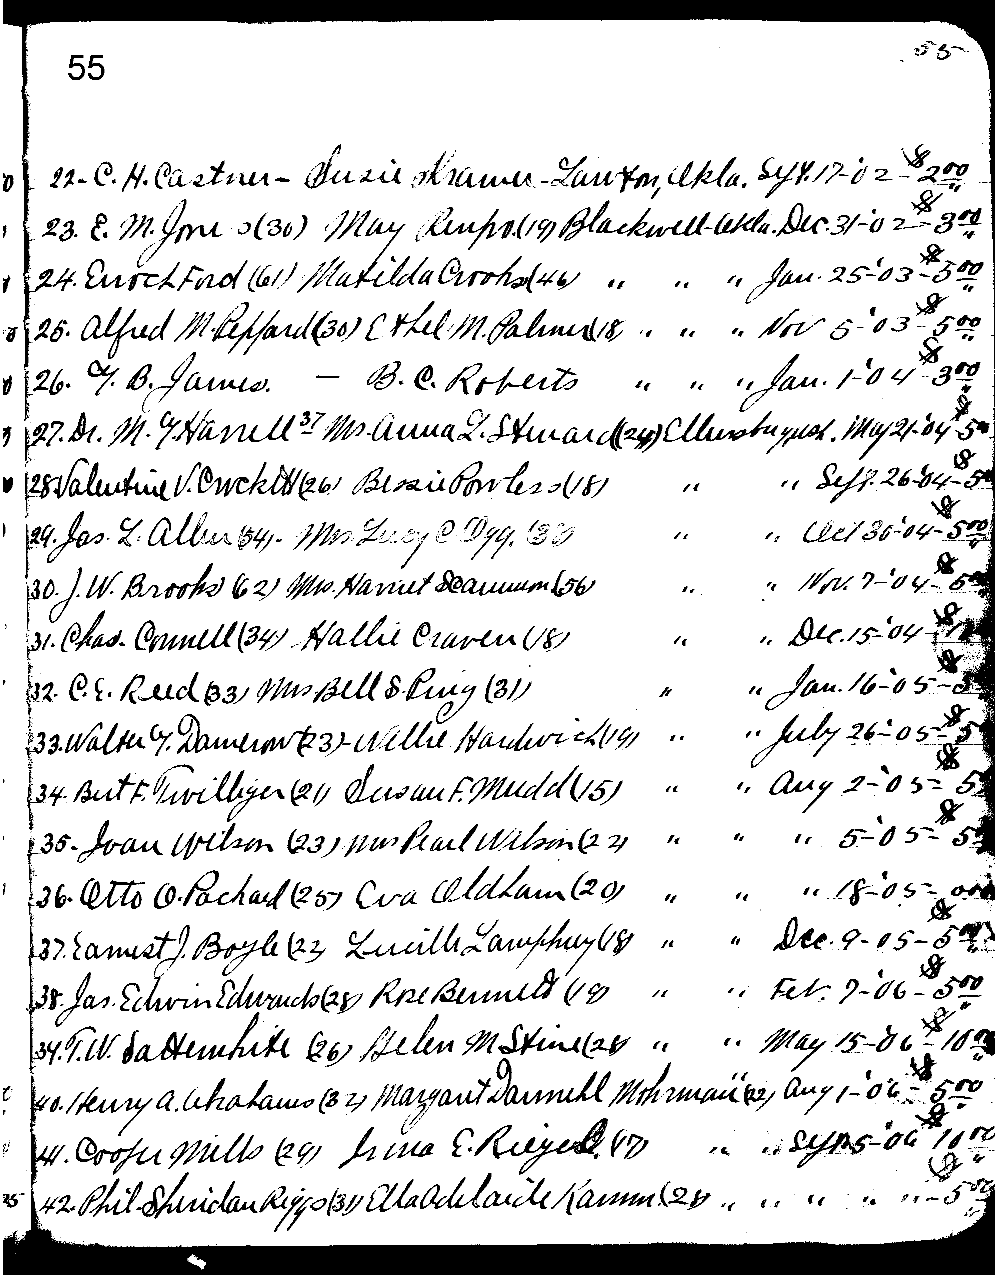 55
55
22- C. H. Castner- Susie Kramer- Lawton, Okla. Sept. 17-'02- $2.00
23. E. M. Jones (30) May Renfro (19) Blackwell-Okla. Dec. 31-'02- $3.00
24. Enoch Ford (61) Matilda Crooks (46) " " " Jan. 25-'03- $5.00
25. Alfred M. Peppard (30) Ethel M. Palmer (18 " " " Nov 5-'03- $5.00
26. B. James. - B. C. Roberts " " " Jan. 1-'04- $3.00
27. Dr. M. Y. Harrell 37 Mrs. Anna L. Steward (24) May 21-'04 $5
28. Valentine V. Crockett (26) Bessie Powless (18) " " Sept. 26-'04- $5
29. Jas. L. Allen (34). Mrs. Lucy C. " " Oct 30-'04- $5.00
30. J. W. Brooks (62) Mrs. Harriet Scammon (56) " " Nov. 7-'04- $5
31. Chas. Connell (34) Hallie Craven (18) " " Dec. 15-'04- $
32. C. E. Reed (33) Mrs Bell S. Ping (31) " " Jan. 16-'05- $
33. Walter Y. Dameron (23)- Willie Hardwick (19) " " July 26-'05- $5
34. Bert F. Twilliger (21) Susan F. Mudd (15) " " Aug 2-'05- $5
35. Joan Wilson (23) Mrs Pearl Wilson (22) " " " 5-'05- $5
36. Otto O. Pachael (25) Eva Oldham (20) " " " 18-'05- 000
37. Earnest J. Boyle (22) Lucille Lamphuy (18) " " Dec. 9-'05- $5.00
38. Jas. Edwin Edwards (28) Rose Bennett (19) " " Feb. 7-'06- $5.00
39. T. W. Satterwhite (26) Helen M Stine (28) " " May 15-'06- $10.00
40. Henry A. Abrahams (32) Margaret Dannehl Mohrman (22) Aug 1-'06- $5.00
41. Cooper Mills (29) Irma E. Rieger (17) " " Sept. 5-'06 $10.00
42. Phil Sheridan Riggs (31) Ella Adelaide Kamm (28) " " " " " - $5.00